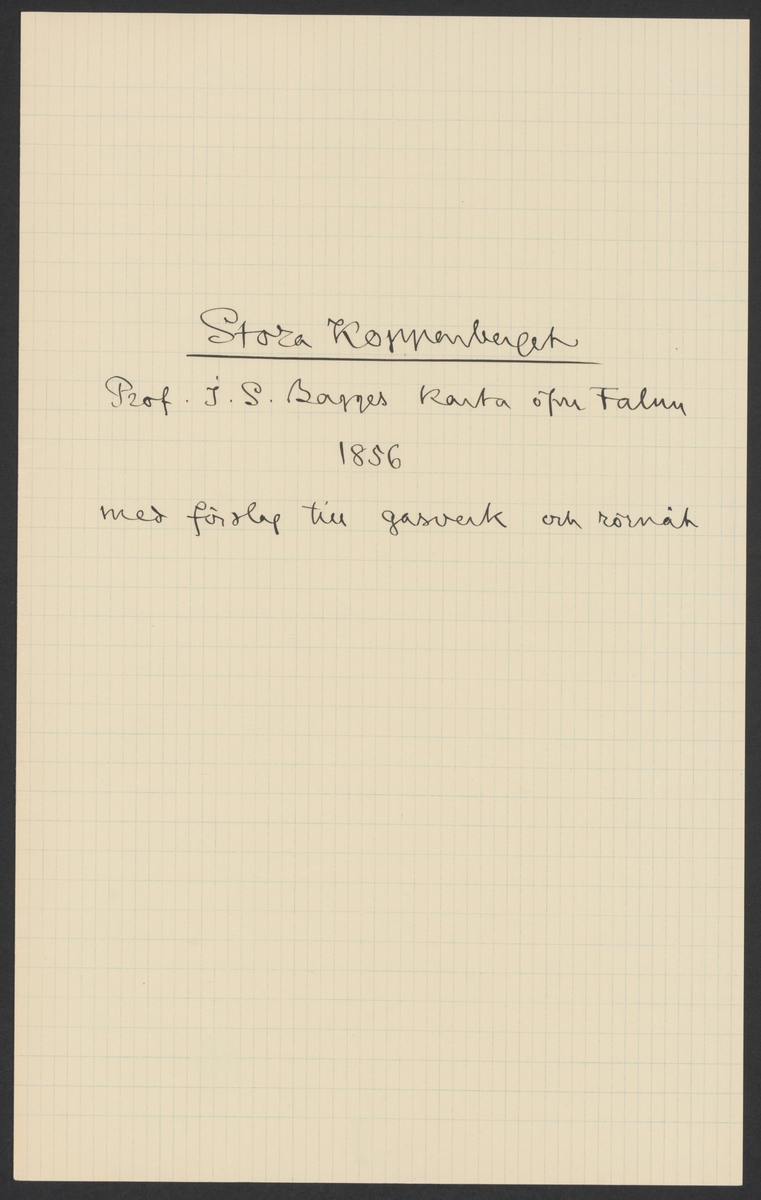 Stora Kopparberget
Prof. J. S. Bagges karta öfver Falun
1856
med förslag till gasverk och rörnät